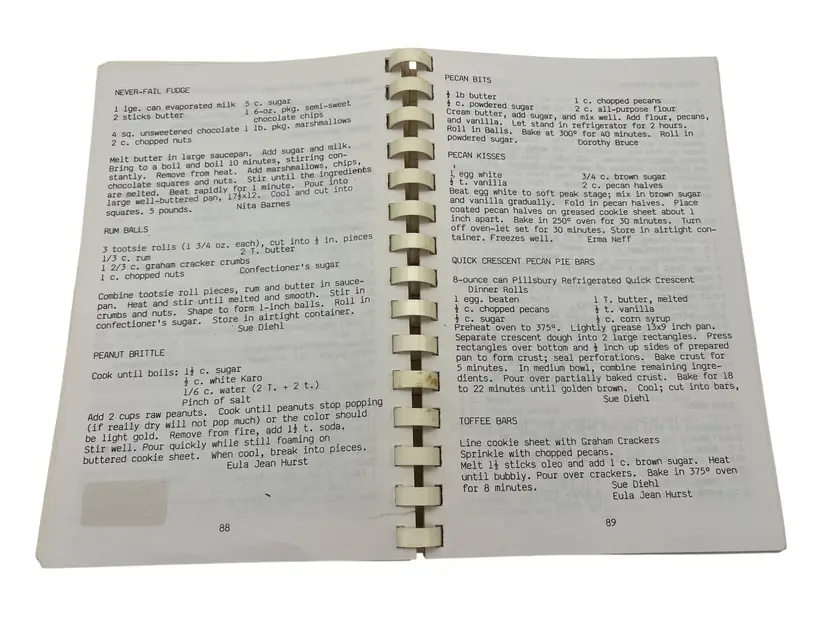 NEVER-FAIL FUDGE
1 lge. can evaporated milk 5 c. sugar
2 sticks butter 1 6-oz. pkg. semi-sweet
chocolate chips
4 sq. unsweetened chocolate 1 lb. pkg. marshmallows
2 c. chopped nuts
Melt butter in large saucepan. Add sugar and milk.
Bring to a boil and boil 10 minutes, stirring con-
stantly. Remove from heat. Add marshmallows, chips,
chocolate squares and nuts. Stir until the ingredients
are melted. Beat rapidly for 1 minute. Pour into
large well-buttered pan, 17½x12. Cool and cut into
squares. 5 pounds. Nita Barnes
RUM BALLS
3 tootsie rolls (1 3/4 oz. each), cut into ½ in. pieces
1/3 c. rum 2 T. butter
1 2/3 c. graham cracker crumbs
1 c. chopped nuts Confectioner's sugar
Combine tootsie roll pieces, rum and butter in sauce-
pan. Heat and stir until melted and smooth. Stir in
crumbs and nuts. Shape to form 1-inch balls. Roll in
confectioner's sugar. Store in airtight container.
Sue Diehl
PEANUT BRITTLE
Cook until boils: 1½ c. sugar
½ c. white Karo
1/6 c. water (2 T. + 2 t.)
Pinch of salt
Add 2 cups raw peanuts. Cook until peanuts stop popping
(if really dry will not pop much) or the color should
be light gold. Remove from fire, add 1½ t. soda.
Stir well. Pour quickly while still foaming on
buttered cookie sheet. When cool, break into pieces.
Eula Jean Hurst
88
PECAN BITS
½ lb butter 1 c. chopped pecans
½ c. powdered sugar 2 c. all-purpose flour
Cream butter, add sugar, and mix well. Add flour, pecans,
and vanilla. Let stand in refrigerator for 2 hours.
Roll in Balls. Bake at 300º for 40 minutes. Roll in
powdered sugar. Dorothy Bruce
PECAN KISSES
1 egg white 3/4 c. brown sugar
½ t. vanilla 2 c. pecan halves
Beat egg white to soft peak stage; mix in brown sugar
and vanilla gradually. Fold in pecan halves. Place
coated pecan halves on greased cookie sheet about 1
inch apart. Bake in 250º oven for 30 minutes. Turn
off oven-let set for 30 minutes. Store in airtight con-
tainer. Freezes well. Erma Neff
QUICK CRESCENT PECAN PIE BARS
8-ounce can Pillsbury Refrigerated Quick Crescent
Dinner Rolls
1 egg. beaten 1 T. butter, melted
½ c. chopped pecans ½ t. vanilla
½ c. sugar ½ c. corn syrup
Preheat oven to 375º. Lightly grease 13x9 inch pan.
Separate crescent dough into 2 large rectangles. Press
rectangles over bottom and ½ inch up sides of prepared
pan to form crust; seal perforations. Bake crust for
5 minutes. In medium bowl, combine remaining ingre-
dients. Pour over partially baked crust. Bake for 18
to 22 minutes until golden brown. Cool; cut into bars,
Sue Diehl
TOFFEE BARS
Line cookie sheet with Graham Crackers
Sprinkle with chopped pecans.
Melt 1½ sticks oleo and add 1 c. brown sugar. Heat
until bubbly. Pour over crackers. Bake in 375º oven
for 8 minutes. Sue Diehl
Eula Jean Hurst
89